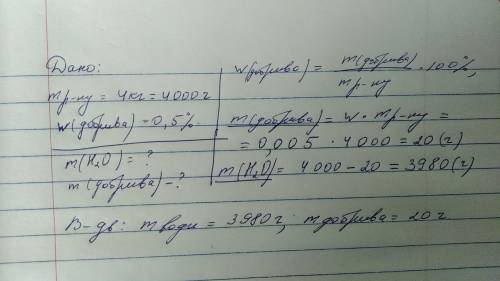 Дано:
m р-ну = 4кг = 4000г
W(добрива) = 0,5%
m(H₂O) = ?
m(добрива) - ?
W(добрива) = m(добрива) / m р-ну · 100%,
m(добрива) = W · m р-ну =
= 0,005 · 4000 = 20 (г)
m(H₂O) = 4000 - 20 = 3980 (г)
В-дь: m води = 3980 г; m добрива = 20 г